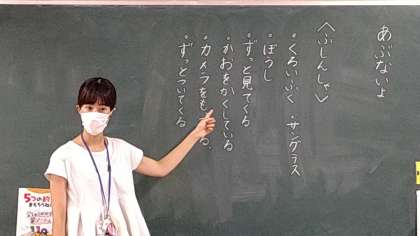 あぶないよ
〈ふしんしゃ〉
・くろいふく ・サングラス
・ぼうし
・ずっと見てくる
・かおをかくしている
・カメラをもってる
・ずっとついてくる
5つの約